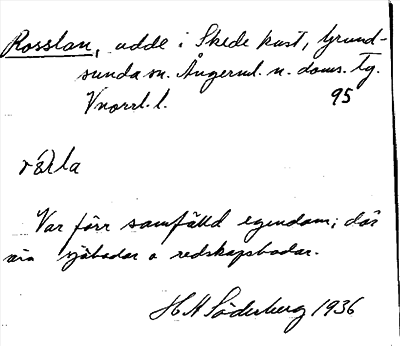 Rosslan, udde i Skede kust, Grund-
sunda sn. Ångerml. n. doms. tg.
Vnorrl. l. 95
Var förr samfälld egendom; där
sjöbodar o redskapsbodar.
H H Söderberg 1936